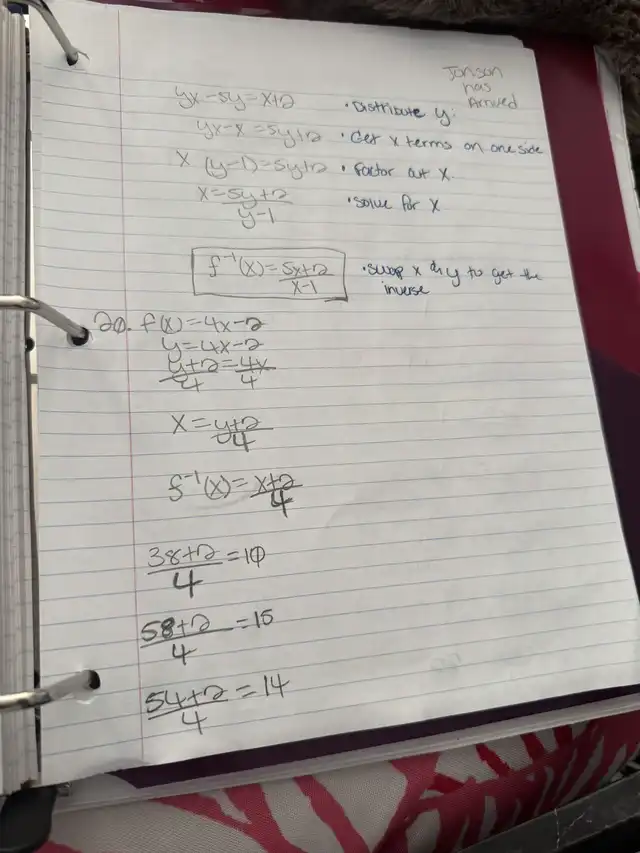 Jonson
has
Arrived
yx-5y=x+2 • Distribute y:
yx-x=5y+2 • Get x terms on one side
x (y-1)=5y+2 • factor out x.
x=5y+2/y-1 • solve for x
f⁻¹(x)=5x+2/x-1 • swap x & y to get the
inverse
20. f(x)=4x-2
y=4x-2
y+2/4=4x/4
x=y+2/4
f⁻¹(x)=x+2/4
38+2/4=10
58+2/4=15
54+2/4=14